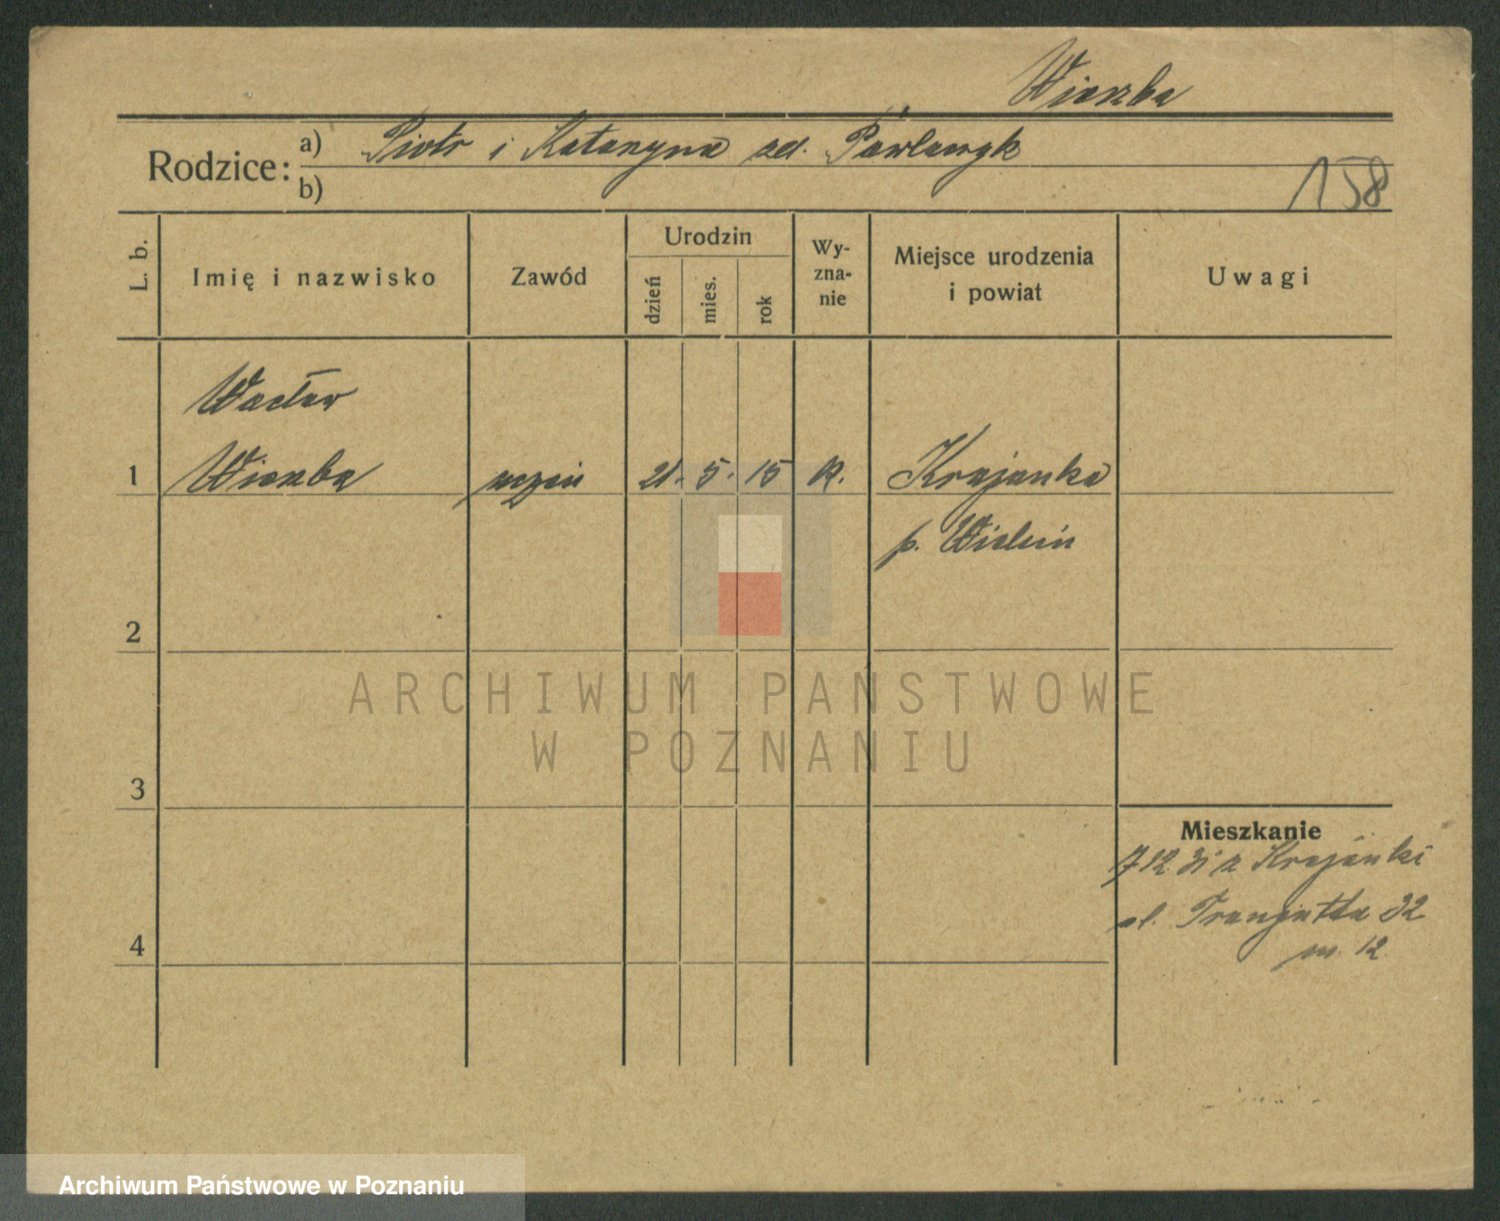 Wieruba
Rodzice: a) Piotr i Katarzyna zd. Pawlaczyk
b)
158
L. b.
Imię i nazwisko
Zawód
Urodzin
dzień
mies.
rok
Wy-
zna-
nie
Miejsce urodzenia
i powiat
Uwagi
Wacław
1 uczeń 21. 5. 15 R. Krajanka
p. Wieluń
2
3
4
Mieszkanie
7 12 31 z Krajanki
ul. Traugutta 32
m. 12
ARCHIWUM PAŃSTWOWE
W POZNANIU
Archiwum Państwowe w Poznaniu